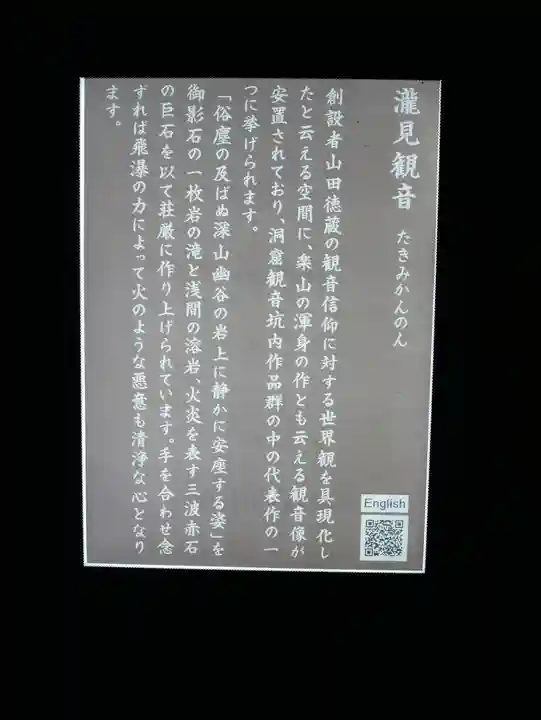 瀧見観音 たきみかんのん
創設者山田徳蔵の観音信仰に対する世界観を具現化し
たと云える空間に、楽山の渾身の作とも云える観音像が
安置されており、洞窟観音坑内作品群の中の代表作の一
つに挙げられます。
「俗塵の及ばぬ深山幽谷の岩上に静かに安座する姿」を
御影石の一枚岩の滝と浅間の溶岩、火炎を表す三波赤石
の巨石を以て荘厳に作り上げられています。手を合わせ念
ずれば飛瀑の力によって火のような悪意も清浄な心となり
ます。
English